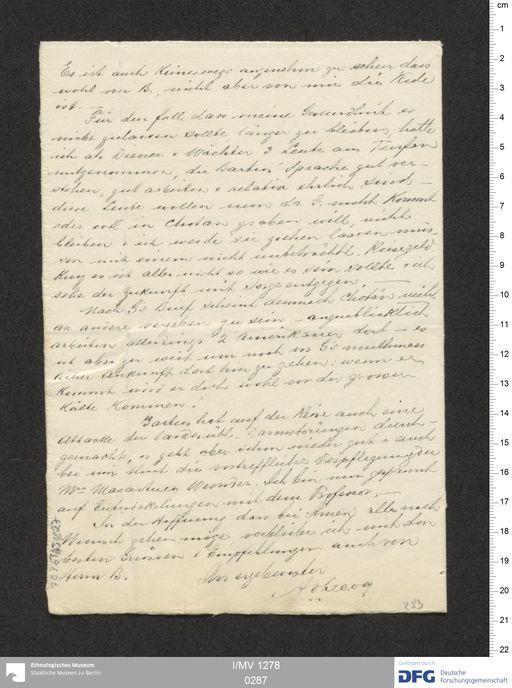 Es ist auch keineswegs angenehm zu sehen dass
wohl von B., nicht aber von mir die Rede
ist. —
Für den Fall dass meine Gesundheit es
nicht zulassen sollte länger zu bleiben, hatte
ich als Diener & Wächter 3 Leute aus Turfan
mitgenommen, die Bartus Sprache gut ver-
stehen, gut arbeiten & relativ ehrlich sind —
diese Leute wollen nun da G. nicht kommt
oder evtl. in Chotan graben will, nicht
bleiben & ich werde sie ziehen lassen müs-
sen mit einem nicht unbeträchtl. Reisegeld.
Kurz es ist alles nicht so wie es sein sollte & ich
sehe der Zukunft mit Sorge entgegen. —
Nach G's Brief scheint demnach Chotan nicht
an andere vergeben zu sein — augenblicklich
arbeiten allerdings 2 Amerikaner dort — es
ist aber zu weit um noch vor G's
Ankunft dort hin zu gehen: wenn er
kommt wird er doch wohl vor der grossen
Kälte kommen!
Bartus hat auf der Reise auch eine
Attacke der landesübl. Darmstörungen durch-
gemacht, es geht aber schon wieder gut & auch
bei mir thut die vortreffliche Verpflegung der
Mrs Macartney Wunder. Ich bin nun gespannt
auf Entwickelungen mit dem Professor. —
In der Hoffnung dass bei Ihnen alles nach
Wunsch gehen möge verbleibe ich mit den
besten Grüssen & Empfehlungen auch von
Herrn B.
Ihr ergebenster
A v Lecoq
283
cm
1
2
3
4
5
6
7
8
9
10
11
12
13
14
15
16
17
18
19
20
21
22
Ethnologisches Museum
Staatliche Museen zu Berlin
I/MV 1278
0287
Gefördert durch
DFG Deutsche
Forschungsgemeinschaft